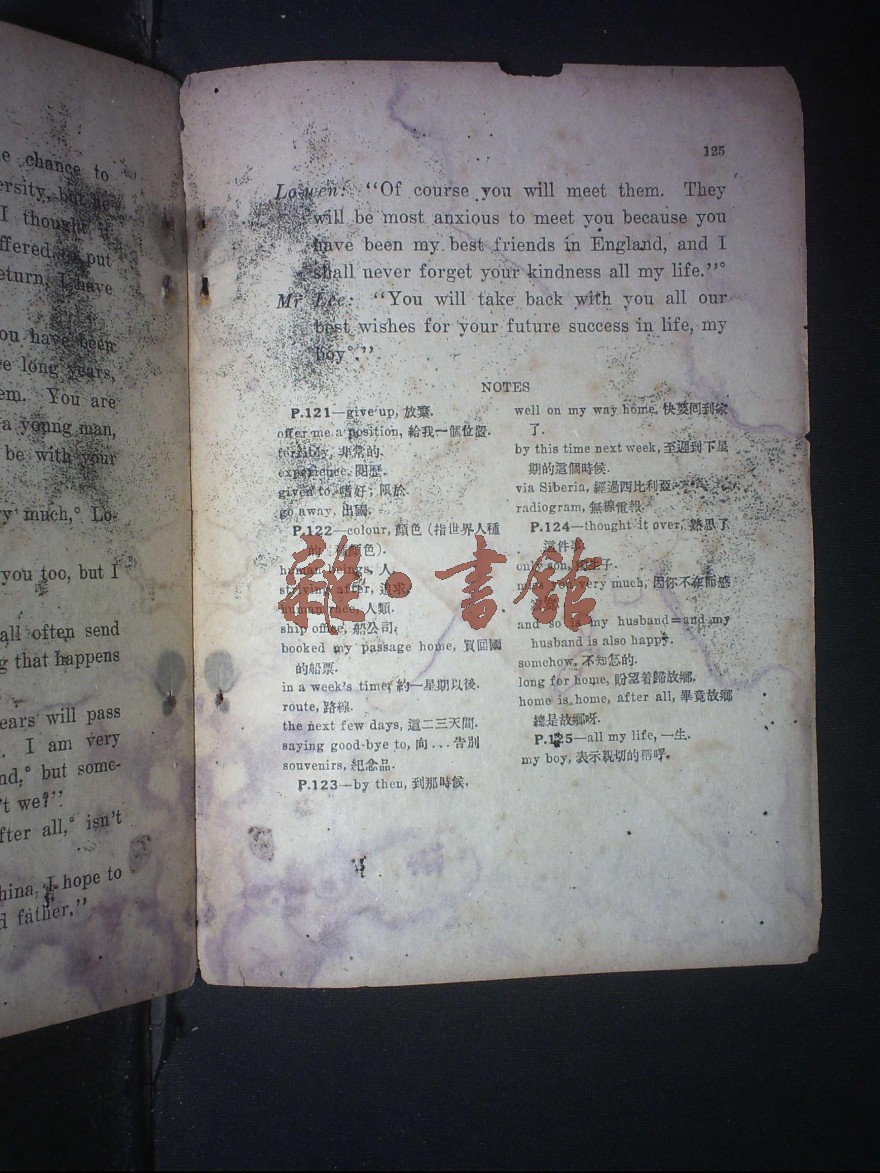 e chance to
ersity, but he
I thought it
ffered, put
eturn, I have
ou have been
e long years,
em. You are
a young man,
be with your
ry much,° Lo-
you too, but I
all often send
g that happens
ears will pass
. I am very
nd,° but some-
't we?"
fter all,° isn't
hina, I hope to
d father."
125
Lo-wen: "Of course you will meet them. They
will be most anxious to meet you because you
have been my best friends in England, and I
shall never forget your kindness all my life."°
Mr Lee: "You will take back with you all our
best wishes for your future success in life, my
boy°."
NOTES
P.121—give up, 放棄.
offer me a position, 給我一個位置.
terribly, 非常的.
experience, 閱歷.
given to, 嗜好; 限於.
go away, 出國.
P.122—colour, 顏色 (指世界人種
的 種顏色).
human beings, 人
striving after, 追求.
human race, 人類.
ship office, 船公司.
booked my passage home, 買回國
的船票.
in a week's time, 約一星期以後.
route, 路線.
the next few days, 這二三天間.
saying good-bye to, 向...告別
souvenirs, 紀念品.
P.123—by then, 到那時候.
well on my way home, 快要回到家
了.
by this time next week, 至遲到下星
期的這個時候.
via Siberia, 經過西比利亞
radiogram, 無線電報.
P.124—thought it over, 熟思了
這件事.
only son, 獨生子.
miss you very much, 因你不在而感
and so is my husband=and my
husband is also happy.
somehow, 不知怎的.
long for home, 盼望着歸故鄉.
home is home, after all, 畢竟故鄉
總是故鄉呀.
P.125—all my life, 一生.
my boy, 表示親切的稱呼.
雜·書館